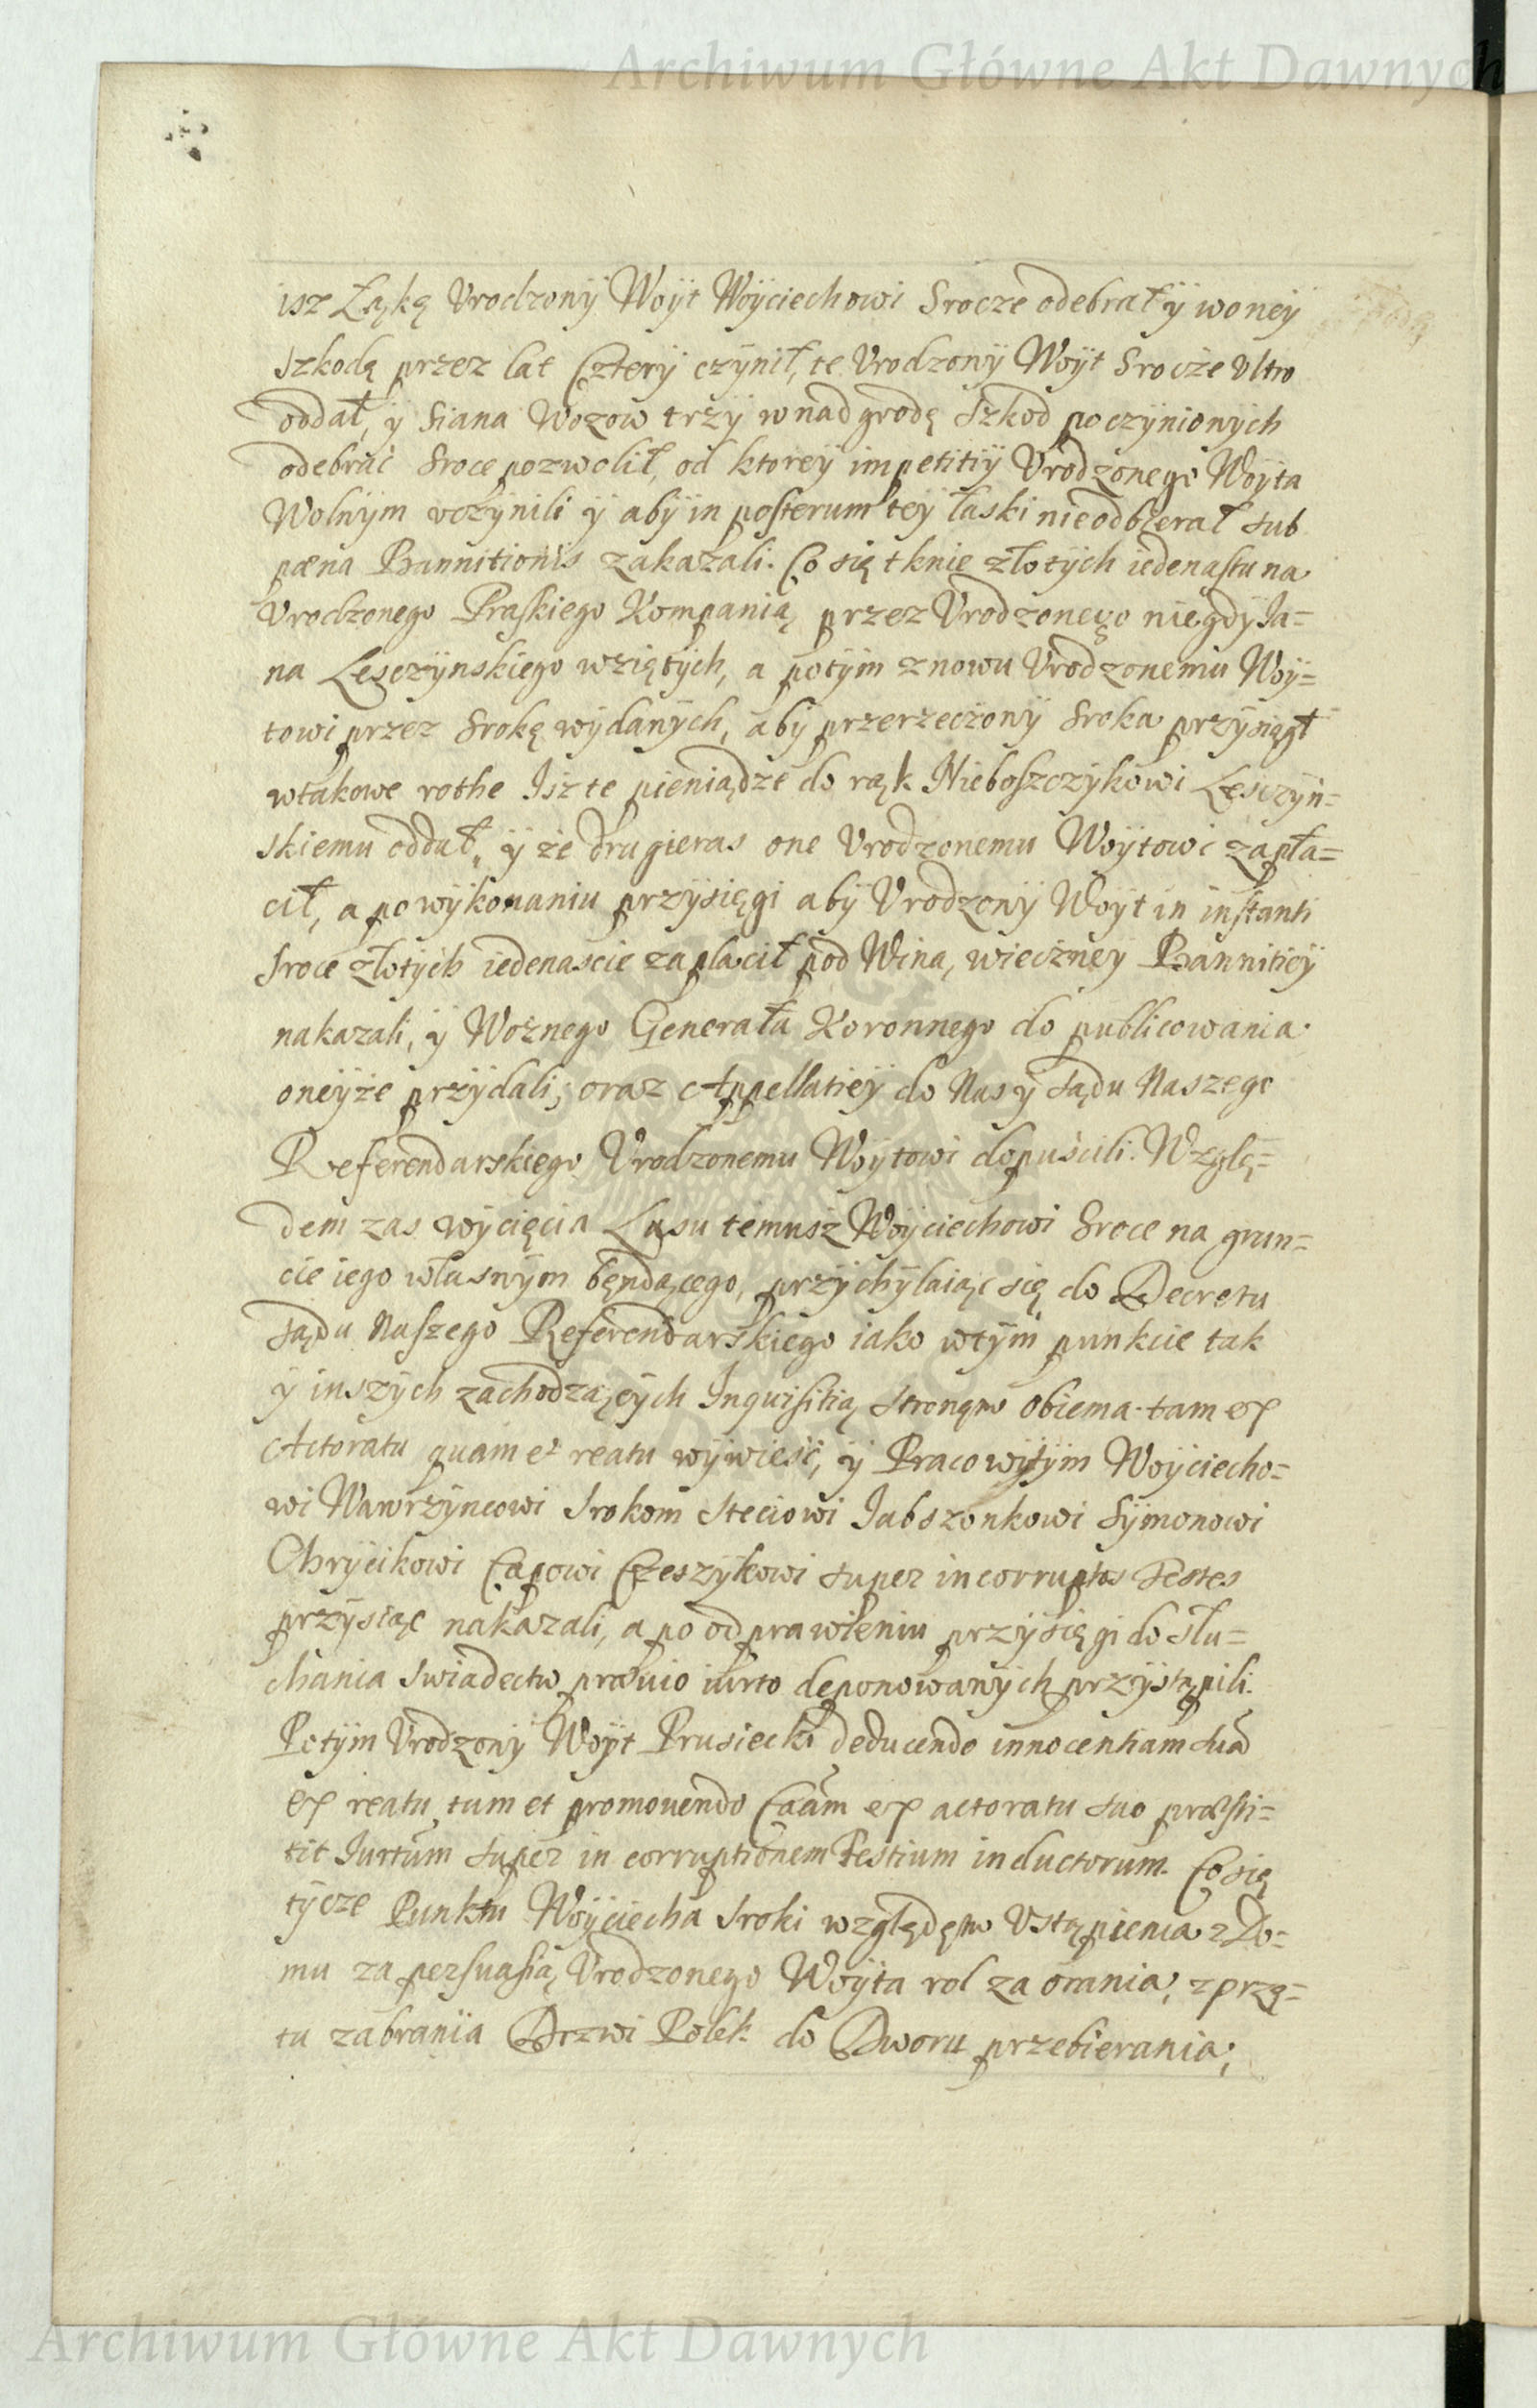 Archiwum Główne Akt Dawnych
isz Łąkę Vrodzony Woyt Woyciechowi Srocze odebrał y woney
szkodę przez lat Cztery czynił, te Vrodzony Woyt Srocże Vltro
oddał, y Siana Wozow trzy wnadgrodę Szkod poczynionych
odebrać Sroce pozwolił, od ktorey impetitiy Vrodzonego Woyta
Wolnym vczynili y aby in posterum tey łaski nieodbierał sub
pæna Bannitionis zakazali. Co się tknie złotych iedenastu na
Vrodzonego Praskiego Kompanią, przez Vrodzonego niegdy Ja=
na Lesczynskiego wziętych, a potym znowu Vrodzonemu Woy=
towi przez Srokę wydanych, aby przerzeczony Sroka przysiągł
wtakowe rothe Jsz te pieniądze do rąk Nieboszczykowi Lesczyn=
skiemu oddał, y że drugieras one Vrodzonemu Woytowi zapła=
cił, a po wykonaniu przysięgi aby Vrodzony Woyt in instanti
Sroce złotych iedenascie zaplacił pod Winą, wieczney Bannitiey
nakazali, y Woznego Generała Koronnego do publicowania
oneyże przydali; oraz Appellatiey do Nas y Sądu Naszego
Referendarskiego Vrodzonemu Woytowi dopuscili. Wzglę=
dem zas wycięcia Lasu temusz Woyciechowi Sroce na grun=
cie iego własnym będącego, przychylaiąc się do Decretu
Sądu Naszego Referendarskiego iako wtym punkcie tak
y inszych zachodzących Inquisitią stronąm obiema tam ex
Actoratu quam et reatu wywiesć, y Pracowitym Woyciecho=
wi Wawrzyncowi Srokom Steciowi Jabszonkowi Symonowi
Chrycikowi Capowi Czeszykowi super incorruptos Testes
przysiąc nakazali, a po odprawieniu przysięgi do słu=
chania swiadectw prævio iurto deponowanych przystąpili.
Potym Vrodzony Woyt Prusiecki deducendo innocentiam suã
ex reatu, tum et promovendo Caãm ex actoratu suo præsti=
tit Jurtum super in corruptionem Testium inductorum. Co się
tycze Punktu Woyciecha Sroki względęm Vstąpienia z Do=
mu za persuasią Vrodzonego Woyta rol za orania, zprzę=
tu zabrania Drzwi Polek do Dworu przebierania;
Archiwum Główne Akt Dawnych